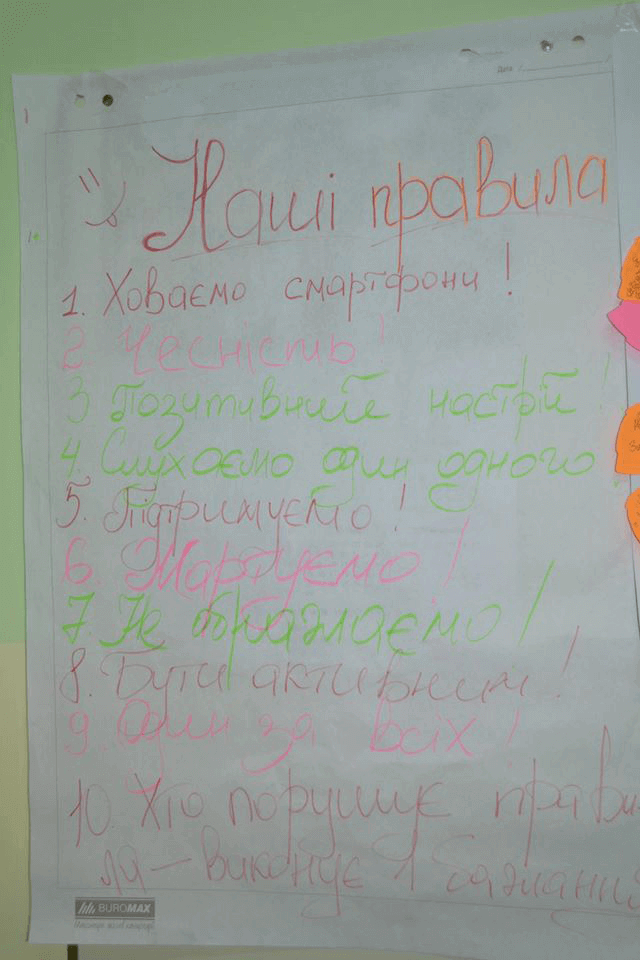 Дата / /
Наші правила
1. Ховаємо смартфони!
2. Чесність!
3 Позитивний настрій!
4. Слухаємо один одного!
5. Підтримуємо!
6. Жартуємо!
7. Не ображаємо!
8. Бути активним!
9. Один за всіх!
10. Хто порушує прави-
ла — виконує 1 бажання
BUROMAX